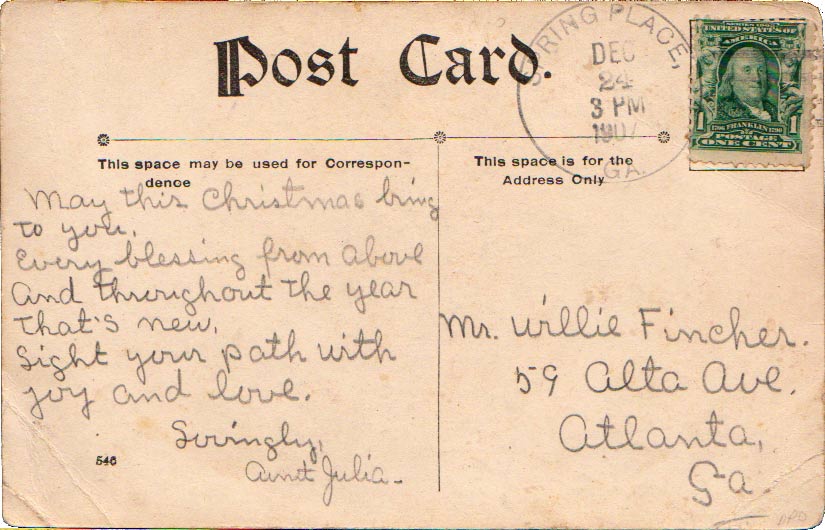 Post Card.
SPRING PLACE,
DEC
24
3 PM
1907
GA.
SERIES 1902
UNITED STATES OF
AMERICA
1 1706 FRANKLIN 1790 1
POSTAGE
ONE CENT
This space may be used for Correspon-
dence
May this Christmas bring
to you,
Every blessing from above
And throughout the year
that's new,
Light your path with
joy and love.
Lovingly,
Aunt Julia-
546
This space is for the
Address Only
Mr. Willie Fincher.
59 Alta Ave.
Atlanta,
Ga